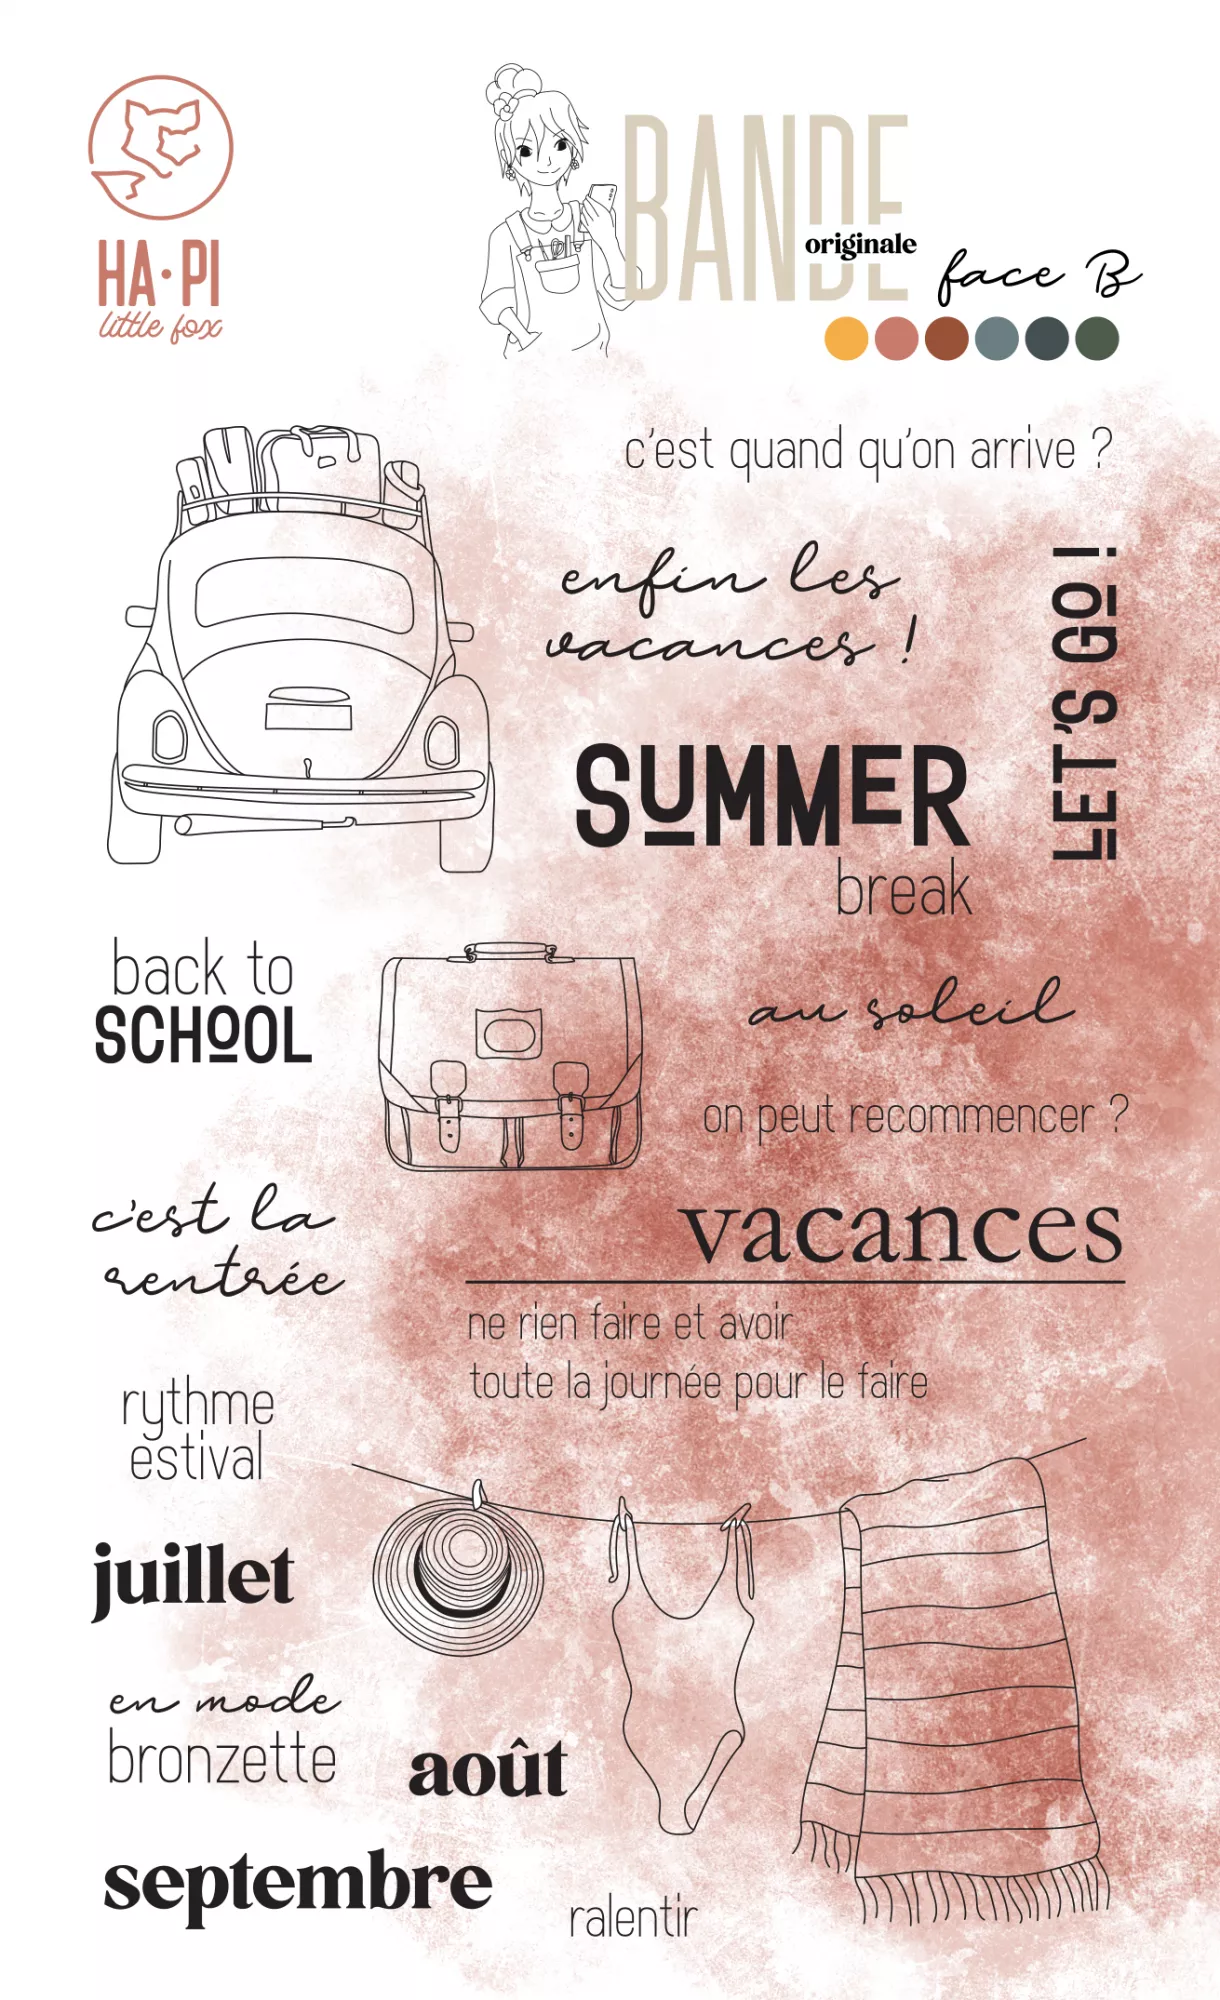 HA·PI
little fox
BANDE
originale
face B
c'est quand qu'on arrive ?
enfin les
vacances !
LET'S GO !
SUMMER
break
back to
SCHOOL
au soleil
on peut recommencer ?
c'est la
rentrée
vacances
ne rien faire et avoir
toute la journée pour le faire
rythme
estival
juillet
en mode
bronzette
août
septembre
ralentir